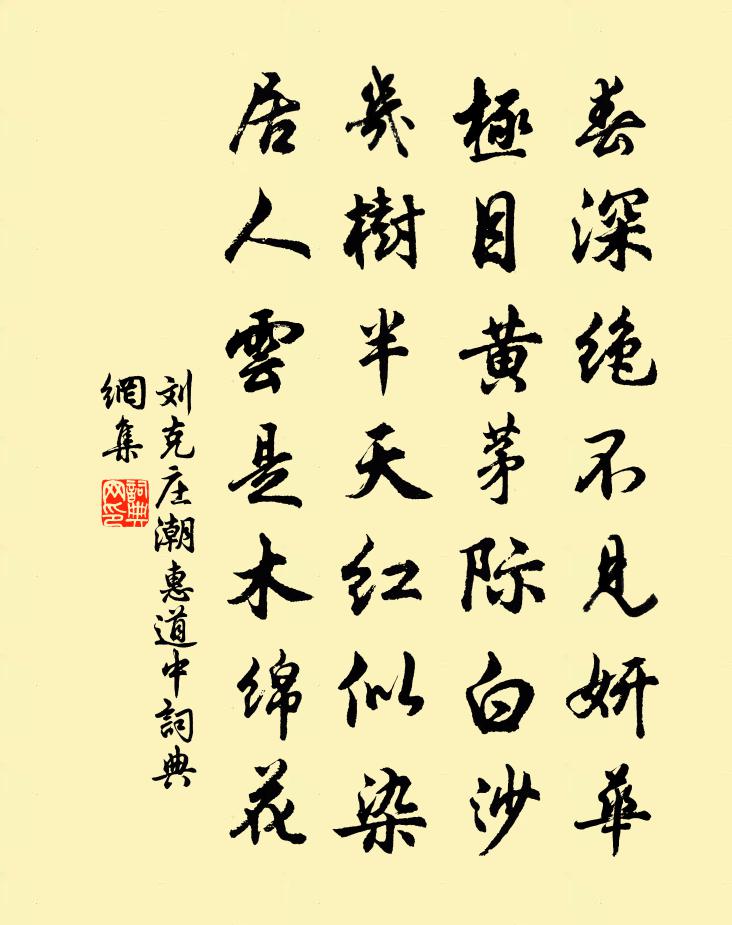 春深绝不見妍華
極目黄茅际白沙
幾樹半天红似染
居人雲是木绵花
刘克庄潮惠道中詞典
網集
詞典
网印